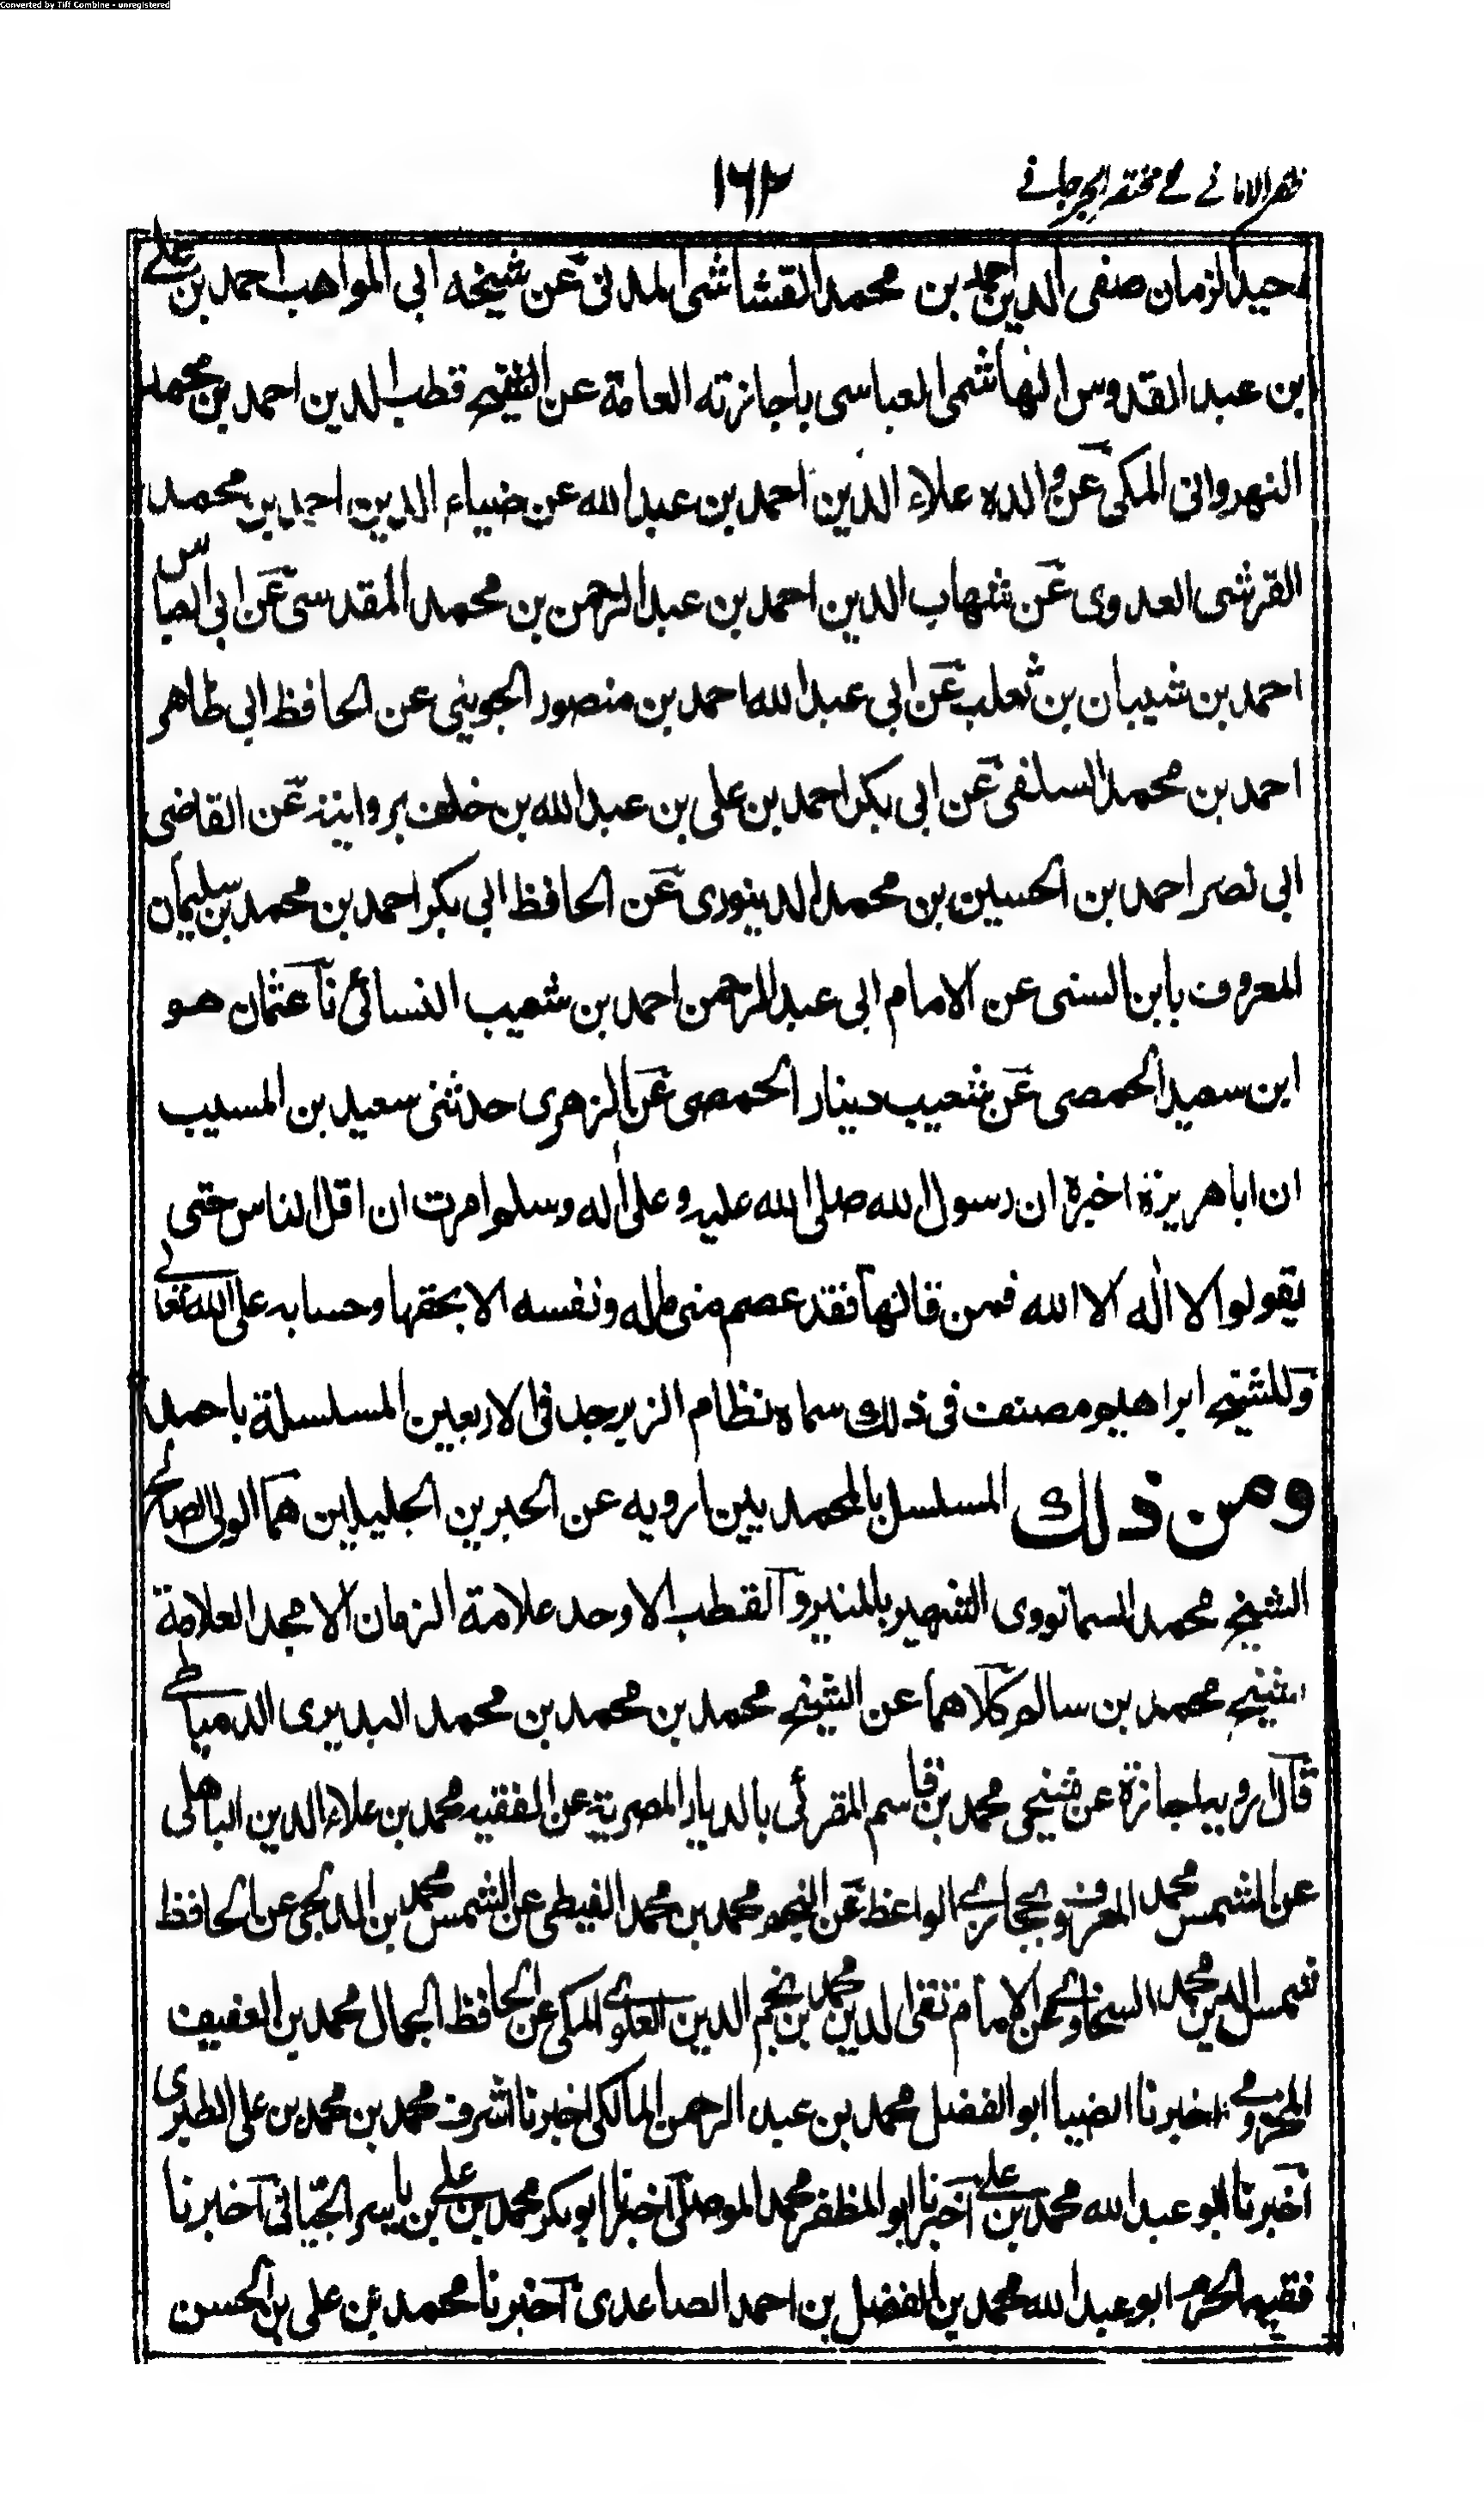 Converted by Tiff Combine - unregistered
ظفر الامانے فے مختصر الجرجانے
١٦٢
وحيد الزمان صفى الدين احمد بن محمد القشاشى المدنى عن شيخه ابى المواهب احمد بن على
ابن عبد القدوس الهاشمى العباسى باجازته العامة عن الفقيه قطب الدين احمد بن محمد
النهروانى المكى عن والده علاء الدين احمد بن عبد الله عن ضياء الدين احمد بن محمد
القرشى العدوى عن شهاب الدين احمد بن عبد الرحمن بن محمد المقدسى عن ابى العباس
احمد بن شيبان بن ثعلب عن ابى عبد الله احمد بن منصور الجوينى عن الحافظ ابى طاهر
احمد بن محمد السلفى عن ابى بكر احمد بن على بن عبد الله بن خلف بروايته عن القاضى
ابى نصر احمد بن الحسين بن محمد الدينورى عن الحافظ ابى بكر احمد بن محمد بن سليمان
المعروف بابن السنى عن الامام ابى عبد الرحمن احمد بن شعيب النسائى نا عثمان هو
ابن سعيد الحمصى عن شعيب دينار الحمصى عن الزهرى حدثنى سعيد بن المسيب
ان ابا هريرة اخبره ان رسول الله صلى الله عليه وعلى اله وسلم امرت ان اقل الناس حتى
يقولوا لا اله الا الله فمن قالها فقد عصم منى ماله ونفسه الا بحقها وحسابه على الله تعالى
وللشيخ ابراهيم مصنف فى ذلك سماه نظام الزبرجد فى الاربعين المسلسلة باحمد
ومن ذلك المسلسل بالمحمديين ارويه عن الحبرين الجليلين هما الولى الصالح
الشيخ محمد السمانووى الشهير بالمنير والقطب الاوحد علامة الزمان الامجد العلامة
الشيخ محمد بن سالم كلاهما عن الشيخ محمد بن محمد بن محمد البديرى الدمياطى
قال ارويه اجازة عن شيخى محمد بن قاسم المقرئى بالديار المصرية عن الفقيه محمد بن علاء الدين البابلى
عن الشمس محمد المعروف بحجازى الواعظ عن النجم محمد بن محمد الغيطى عن الشمس محمد بن الدلجى عن الحافظ
شمس الدين محمد السخاوى عن الامام تقى الدين محمد بن نجم الدين العلوى المكى عن الحافظ الجمال محمد بن العفيف
المخزومى اخبرنا الضيا ابو الفضل محمد بن عبد الرحمن المالكى اخبرنا اشرف محمد بن محمد بن على الطبرى
اخبرنا ابو عبد الله محمد بن على اخبرنا ابو المظفر محمد الموصلى اخبرنا ابو بكر محمد بن على بن ياسر الجيانى اخبرنا
فقيه الحرم ابو عبد الله محمد بن الفضل بن احمد الصاعدى اخبرنا محمد بن على بن الحسن